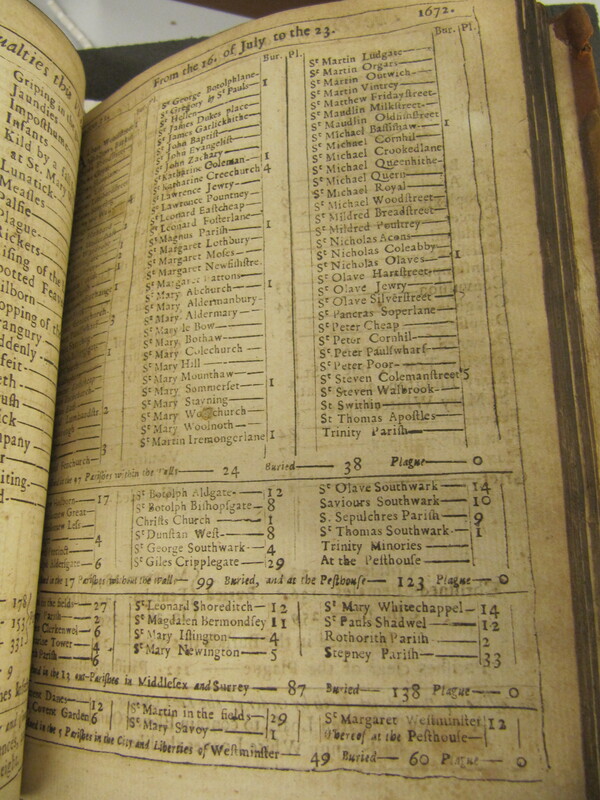 ualties this
Griping in the
Jaundies
Imposthume
Infants
Kild by a
at St. Mary
Lunatick
Measles
Palsie
Plague
Rickets
ising of the
potted Feav
ilborn
opping of th
rangury
ddenly
feit
eth
rush
ick
mpany
iting
178
153
331
9
From the 16. of July to the 23.
1672.
Bur. Pl.
Sᵗ George Botolphlane
Sᵗ Gregory by Sᵗ Pauls 1
Sᵗ Hellen
Sᵗ James Dukes place
Sᵗ James Garlickhithe
Sᵗ John Baptist
Sᵗ John Evangelist
Sᵗ John Zachary
Sᵗ Katharine Coleman 1
Sᵗ Katharine Creechurch 4
Sᵗ Lawrence Jewry
Sᵗ Lawrence Pountney
Sᵗ Leonard Eastcheap
Sᵗ Leonard Fosterlane 1
Sᵗ Magnus Parish
Sᵗ Margaret Lothbury
Sᵗ Margaret Moses
Sᵗ Margaret Newfishstre.
Sᵗ Margaret Pattons
Sᵗ Mary Abchurch 1
Sᵗ Mary Aldermanbury
Sᵗ Mary Aldermary
Sᵗ Mary le Bow
Sᵗ Mary Bothaw
Sᵗ Mary Colechurch
Sᵗ Mary Hill
Sᵗ Mary Mounthaw
Sᵗ Mary Sommerset 1
Sᵗ Mary Stayning
Sᵗ Mary Woolchurch
Sᵗ Mary Woolnoth
Sᵗ Martin Iremongerlane 1
Bur. Pl.
Sᵗ Martin Ludgate
Sᵗ Martin Orgars
Sᵗ Martin Outwich
Sᵗ Martin Vintrey
Sᵗ Matthew Fridaystreet
Sᵗ Maudlin Milkstreet
Sᵗ Maudlin Oldfishstreet
Sᵗ Michael Bassishaw 1
Sᵗ Michael Cornhil
Sᵗ Michael Crookedlane
Sᵗ Michael Queenhithe
Sᵗ Michael Quern
Sᵗ Michael Royal
Sᵗ Michael Woodstreet
Sᵗ Mildred Breadstreet
Sᵗ Mildred Poultrey
Sᵗ Nicholas Acons
Sᵗ Nicholas Coleabby
Sᵗ Nicholas Olaves 1
Sᵗ Olave Hartstreet
Sᵗ Olave Jewry
Sᵗ Olave Silverstreet
Sᵗ Pancras Soperlane
Sᵗ Peter Cheap
Sᵗ Peter Cornhil
Sᵗ Peter Paulswharf
Sᵗ Peter Poor
Sᵗ Steven Colemanstreet 5
Sᵗ Steven Walbrook
St Swithin
St Thomas Apostles
Trinity Parish
the 97 Parishes within the Walls 24 Buried 38 Plague 0
17
4
6
Sᵗ Botolph Aldgate 12
Sᵗ Botolph Bishopsgate 8
Christs Church 1
Sᵗ Dunstan West 8
Sᵗ George Southwark 4
Sᵗ Giles Cripplegate 29
Sᵗ Olave Southwark 14
Saviours Southwark 10
S. Sepulchres Parish 9
Sᵗ Thomas Southwark 1
Trinity Minories
At the Pesthouse
in the 17 Parishes without the walls 99 Buried, and at the Pesthouse 123 Plague 0
in the fields 27
Parish 2
Clerkenwel 6
Tower 4
Parish 6
Sᵗ Leonard Shoreditch 12
Sᵗ Magdalen Bermondsey 11
Sᵗ Mary Islington 4
Sᵗ Mary Newington 5
Sᵗ Mary Whitechappel 14
Sᵗ Pauls Shadwel 12
Rothorith Parish 2
Stepney Parish 33
in the 12 out-Parishes in Middlesex and Surrey 87 Buried 138 Plague 0
Clement Danes 12
Covent Garden 6
Sᵗ Martin in the fields 29
Sᵗ Mary Savoy 1
Sᵗ Margaret Westminster 12
Whereof at the Pesthouse
in the 5 Parishes in the City and Liberties of Westminster 49 Buried 60 Plague 0